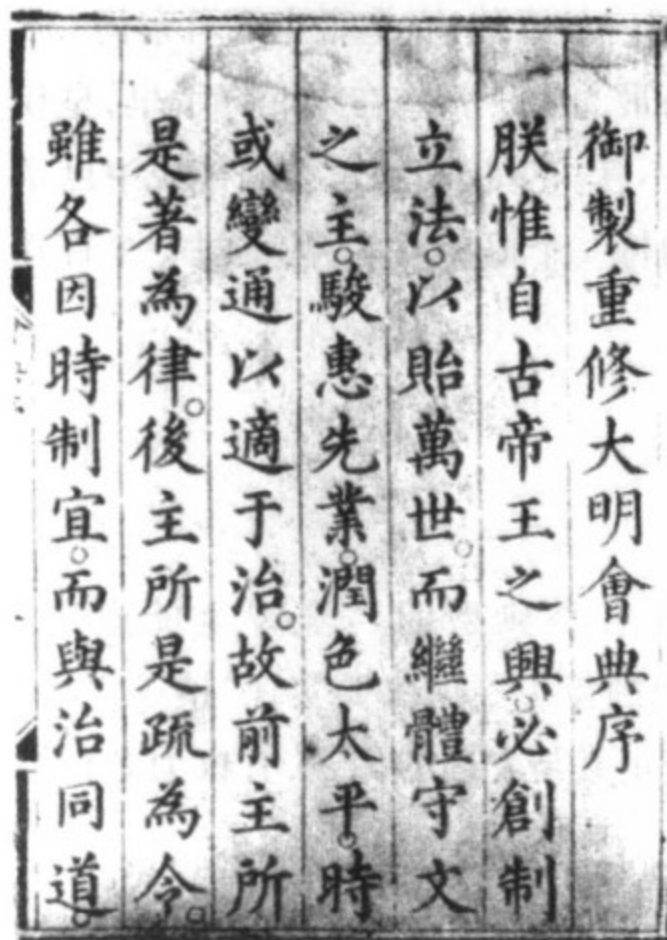 御製重修大明會典序
朕惟自古帝王之興。必創制
立法。以貽萬世。而繼體守文
之主。駿惠先業。潤色太平。時
或變通以適于治。故前主所
是著為律。後主所是疏為令。
雖各因時制宜。而與治同道。